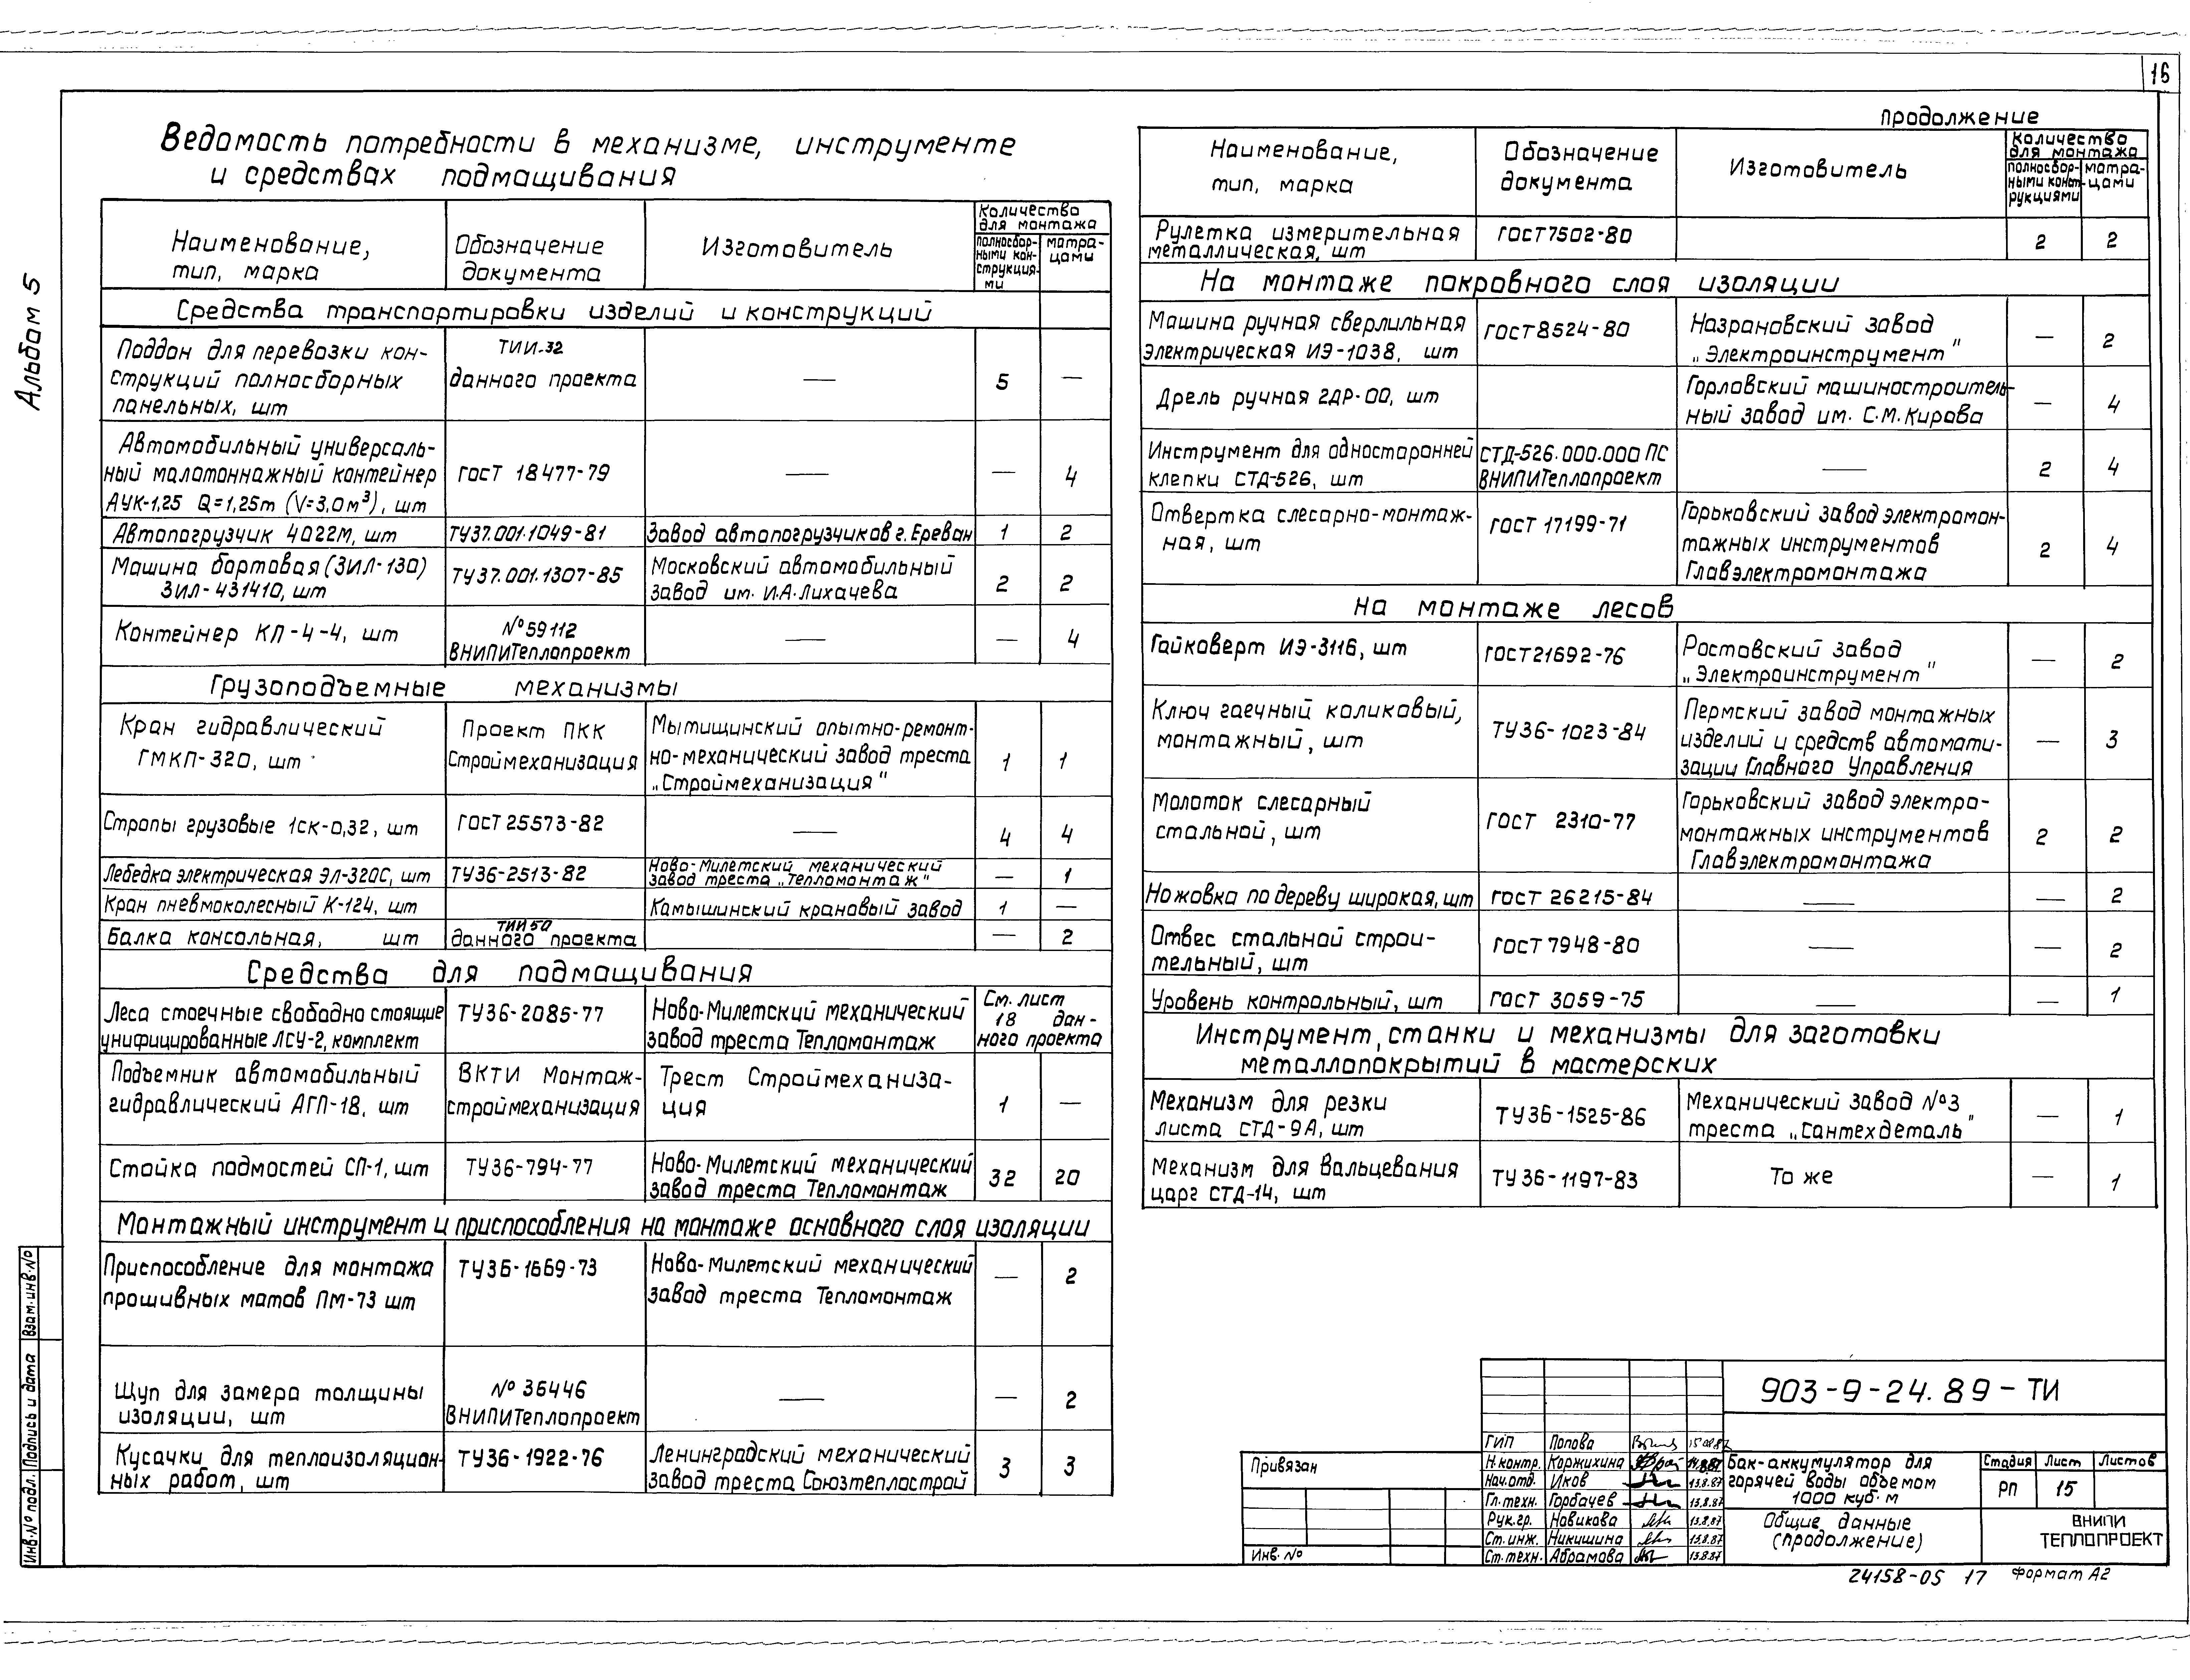 16
Альбом 5
Ведомость потребности в механизме, инструменте
и средствах подмащивания
Наименование, тип, марка
Обозначение документа
Изготовитель
Количество для монтажа
полносборными конструкциями
матрацами
Средства транспортировки изделий и конструкций
Поддон для перевозки кон-
струкций полносборных
панельных, шт
ТИИ-32
данного проекта
—
5
—
Автомобильный универсаль-
ный малотоннажный контейнер
АУК-1,25 Q=1,25т (V=3,0м³), шт
ГОСТ 18477-79
—
—
4
Автопогрузчик 4022М, шт
ТУ37.001.1049-81
Завод автопогрузчиков г. Ереван
1
2
Машина бортовая (ЗИЛ-130)
ЗИЛ-431410, шт
ТУ37.001.1307-85
Московский автомобильный
завод им. И.А.Лихачева
2
2
Контейнер КП-4-4, шт
№59112
ВНИПИТеплопроект
—
—
4
Грузоподъемные механизмы
Кран гидравлический
ГМКП-320, шт
Проект ПКК
Строймеханизация
Мытищинский опытно-ремонт-
но-механический завод треста
„Строймеханизация"
1
1
Стропы грузовые 1ск-0,32, шт
ГОСТ 25573-82
—
4
4
Лебедка электрическая ЭЛ-320С, шт
ТУ36-2513-82
Ново-Милетский механический
завод треста „Тепломонтаж"
—
1
Кран пневмоколесный К-124, шт
Камышинский крановый завод
1
—
Балка консольная, шт
ТИИ50
данного проекта
—
2
Средства для подмащивания
Леса стоечные свободно стоящие
унифицированные ЛСУ-2, комплект
ТУ36-2085-77
Ново-Милетский механический
завод треста Тепломонтаж
См. лист
18 дан-
ного проекта
Подъемник автомобильный
гидравлический АГП-18, шт
ВКТИ Монтаж-
строймеханизация
Трест Строймеханиза-
ция
1
—
Стойка подмостей СП-1, шт
ТУ36-794-77
Ново-Милетский механический
завод треста Тепломонтаж
32
20
Монтажный инструмент и приспособления на монтаже основного слоя изоляции
Приспособление для монтажа
прошивных матов ПМ-73 шт
ТУ36-1669-73
Ново-Милетский механический
завод треста Тепломонтаж
—
2
Щуп для замера толщины
изоляции, шт
№ 36446
ВНИПИТеплопроект
—
—
2
Кусачки для теплоизоляцион-
ных работ, шт
ТУ36-1922-76
Ленинградский механический
завод треста Союзтеплострой
3
3
продолжение
Наименование,
тип, марка
Обозначение
документа
Изготовитель
Количество
для монтажа
полносбор-
ными конст-
рукциями
матра-
цами
Рулетка измерительная
металлическая, шт
ГОСТ7502-80
2
2
На монтаже покровного слоя изоляции
Машина ручная сверлильная
электрическая ИЭ-1038, шт
ГОСТ8524-80
Назрановский завод
„Электроинструмент"
—
2
Дрель ручная 2ДР-00, шт
Горловский машинострoитель-
ный завод им. С.М.Кирова
—
4
Инструмент для односторонней
клепки СТД-526, шт
СТД-526.000.000 ПС
ВНИПИТеплопроект
—
2
4
Отвертка слесарно-монтаж-
ная, шт
ГОСТ 17199-71
Горьковский завод электромон-
тажных инструментов
Главэлектромонтажа
2
4
На монтаже лесов
Гайковерт ИЭ-3116, шт
ГОСТ21692-76
Ростовский завод
„Электроинструмент"
—
2
Ключ гаечный коликовый,
монтажный, шт
ТУ36-1023-84
Пермский завод монтажных
изделий и средств автомати-
зации Главного Управления
—
3
Молоток слесарный
стальной, шт
ГОСТ 2310-77
Горьковский завод электро-
монтажных инструментов
Главэлектромонтажа
2
2
Ножовка по дереву широкая, шт
ГОСТ 26215-84
—
—
2
Отвес стальной строи-
тельный, шт
ГОСТ7948-80
—
—
2
Уровень контрольный, шт
ГОСТ 3059-75
—
—
1
Инструмент, станки и механизмы для заготовки
металлопокрытий в мастерских
Механизм для резки
листа СТД-9А, шт
ТУ36-1525-86
Механический завод №3
треста „Сантехдеталь"
—
1
Механизм для вальцевания
царг СТД-14, шт
ТУ36-1197-83
То же
—
1
Привязан
Инв. №
903-9-24.89-ТИ
ГИП Попова
Н.контр. Коржихина
Нач.отд. Иков 13.8.87
Гл.техн. Горбачев 13.8.87
Рук.гр. Новикова 13.8.87
Ст.инж. Никишина 13.8.87
Ст.техн. Абрамова 13.8.87
Бак-аккумулятор для
горячей воды объемом
1000 куб.м
Стадия Лист Листов
РП 15
Общие данные
(продолжение)
ВНИПИ
ТЕПЛОПРОЕКТ
24158-05 17 Формат А2
Инв.№ подл. Подпись и дата Взам.инв.№